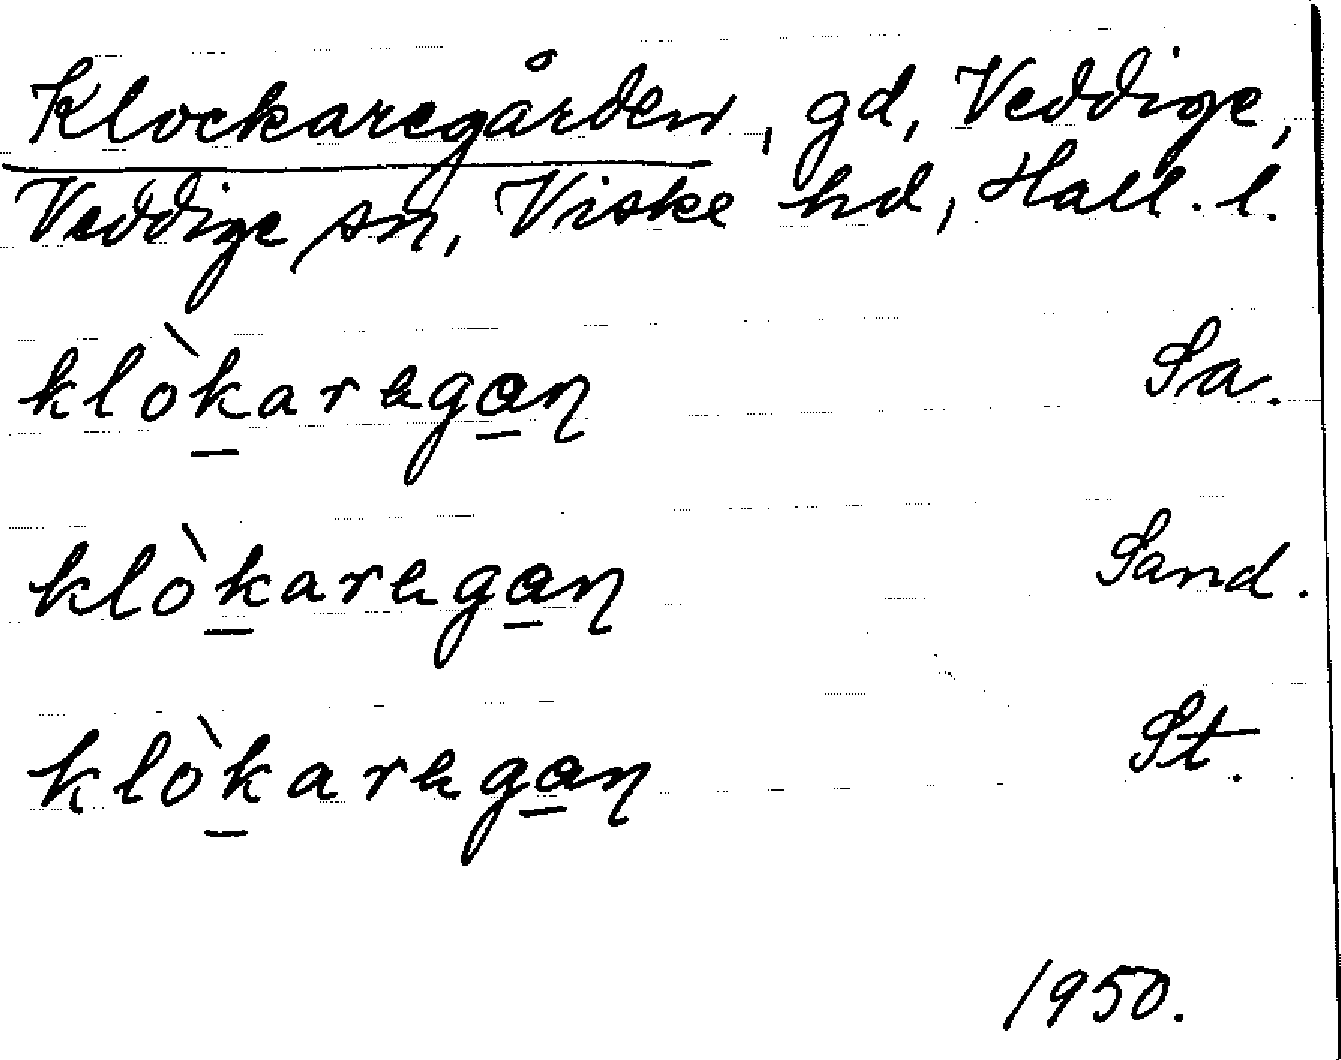 Klockaregården, gd, Veddige,
Veddige sn, Viske hd, Hall. l.
klòkaregan Sa.
klòkaregan Sand.
klòkaregan St.
1950.